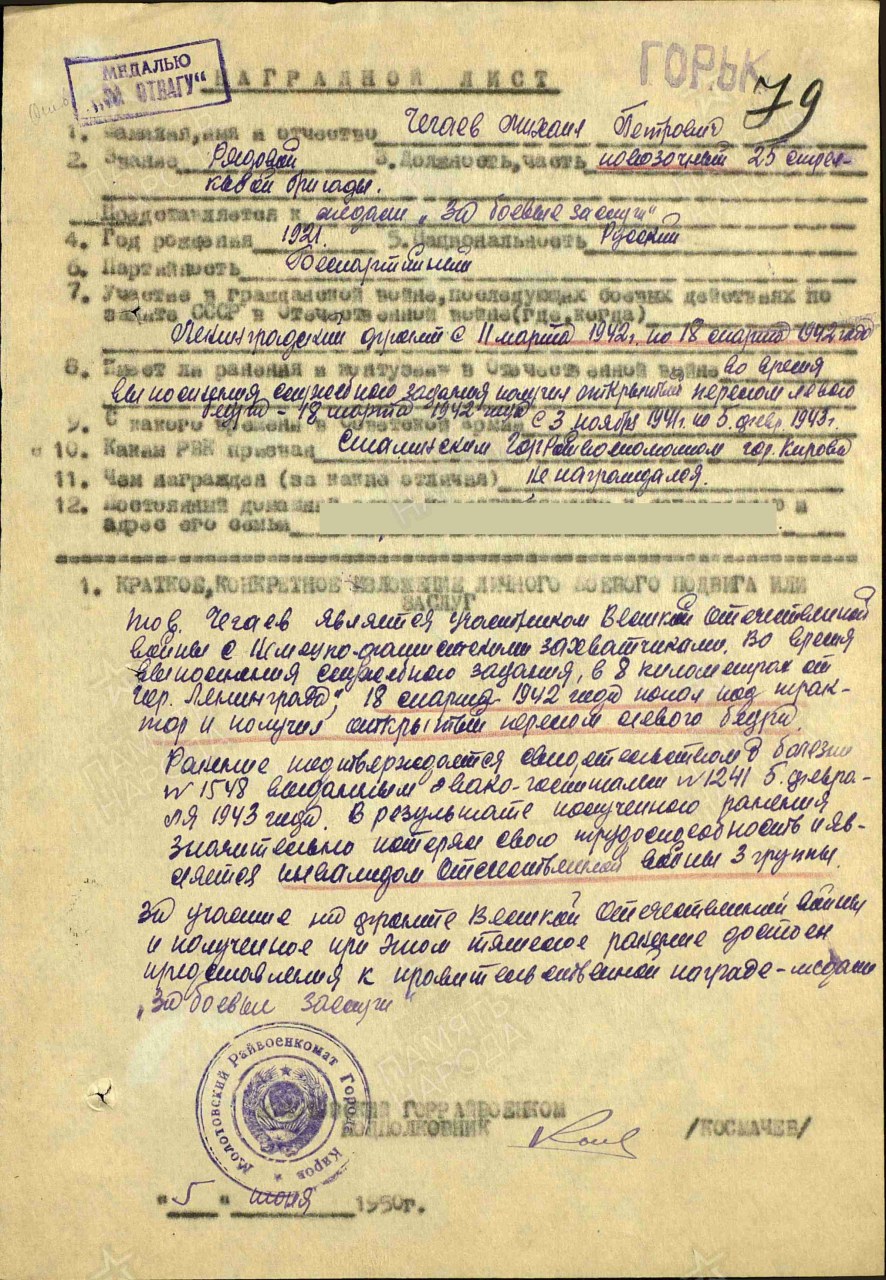 МЕДАЛЬЮ
„ЗА ОТВАГУ“
НАГРАДНОЙ ЛИСТ
ГОРЬК
79
1. Фамилия, имя и отчество Чегаев Михаил Петрович
2. Звание Рядовой 3. Должность, часть повозочный 25 стрел-
ковой бригады.
Представляется к медали „За боевые заслуги“
4. Год рождения 1921. 5. Национальность Русский
6. Партийность Беспартийный
7. Участие в гражданской войне, последующих боевых действиях по
защите СССР в Отечественной войне (где, когда)
Ленинградский фронт с 11 марта 1942г. по 18 марта 1942 года
8. Имеет ли ранения и контузии в Отечественной войне во время
выполнения служебного задания получил открытый перелом левого
бедра – 18 марта 1942 года
9. С какого времени в Советской армии с 3 ноября 1941г. по 5 февр. 1943г.
10. Каким РВК призван Сталинским Горрайвоенкоматом гор. Кирова
11. Чем награжден (за какие отличия) не награждался.
12. Постоянный домашний адрес и
адрес его семьи
1. КРАТКОЕ, КОНКРЕТНОЕ ИЗЛОЖЕНИЕ ЛИЧНОГО БОЕВОГО ПОДВИГА ИЛИ
ЗАСЛУГ
тов. Чегаев является участником Великой Отечественной
войны с Немецко-фашистскими захватчиками. Во время
выполнения служебного задания, в 8 километрах от
гор. Ленинграда, 18 марта 1942 года попал под трак-
тор и получил открытый перелом левого бедра.
Ранение подтверждается свидетельством о болезни
№ 1548 выданным эвако-госпиталем № 1241 5. февра-
ля 1943 года. В результате полученного ранения
значительно потерял свою трудоспособность и яв-
ляется инвалидом Отечественной войны 3 группы.
За участие на фронте Великой Отечественной войны
и полученное при этом тяжелое ранение достоин
представления к правительственной награде – медали
„За боевые заслуги“
Молотовский Райвоенкомат Города Киров
ГОРРАЙВОЕНКОМ
ПОДПОЛКОВНИК /КОСМАЧЕВ/
"5" июня 1950г.
ПАМЯТЬ
НАРОДА